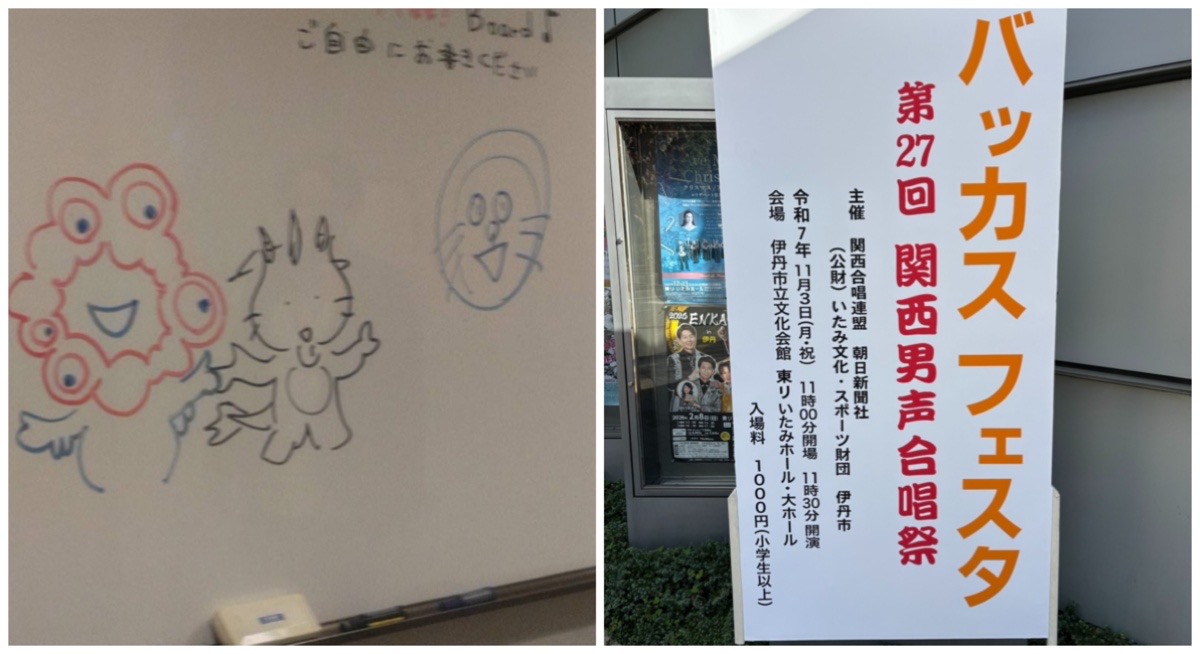 Board♪
ご自由にお書きください
バッカス フェスタ
第27回 関西男声合唱祭
主催 関西合唱連盟 朝日新聞社
(公財)いたみ文化・スポーツ財団 伊丹市
令和7年 11月3日(月・祝) 11時00分開場 11時30分開演
会場 伊丹市立文化会館 東リ いたみホール・大ホール
入場料 1000円(小学生以上)
ENKA
伊丹